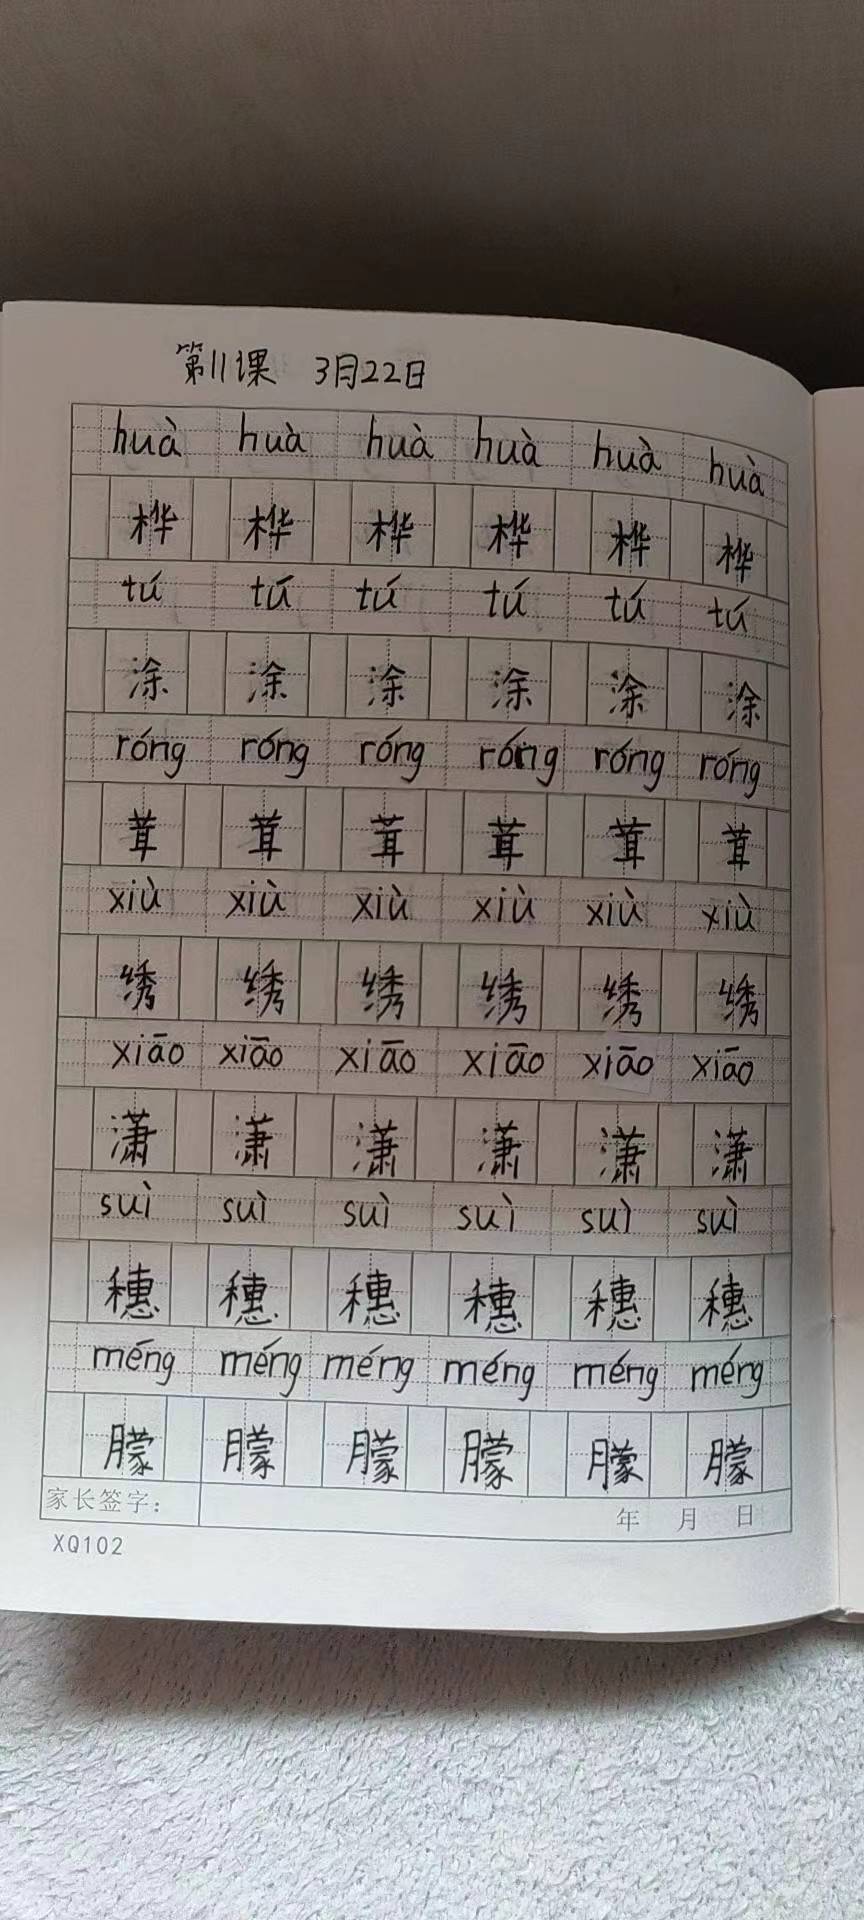 第11课 3月22日
huà huà huà huà huà huà
桦 桦 桦 桦 桦 桦
tú tú tú tú tú tú
涂 涂 涂 涂 涂 涂
róng róng róng róng róng róng
茸 茸 茸 茸 茸 茸
xiù xiù xiù xiù xiù xiù
绣 绣 绣 绣 绣 绣
xiāo xiāo xiāo xiāo xiāo xiāo
潇 潇 潇 潇 潇 潇
suì suì suì suì suì suì
穗 穗 穗 穗 穗 穗
méng méng méng méng méng méng
朦 朦 朦 朦 朦 朦
家长签字： 年 月 日
XQ102